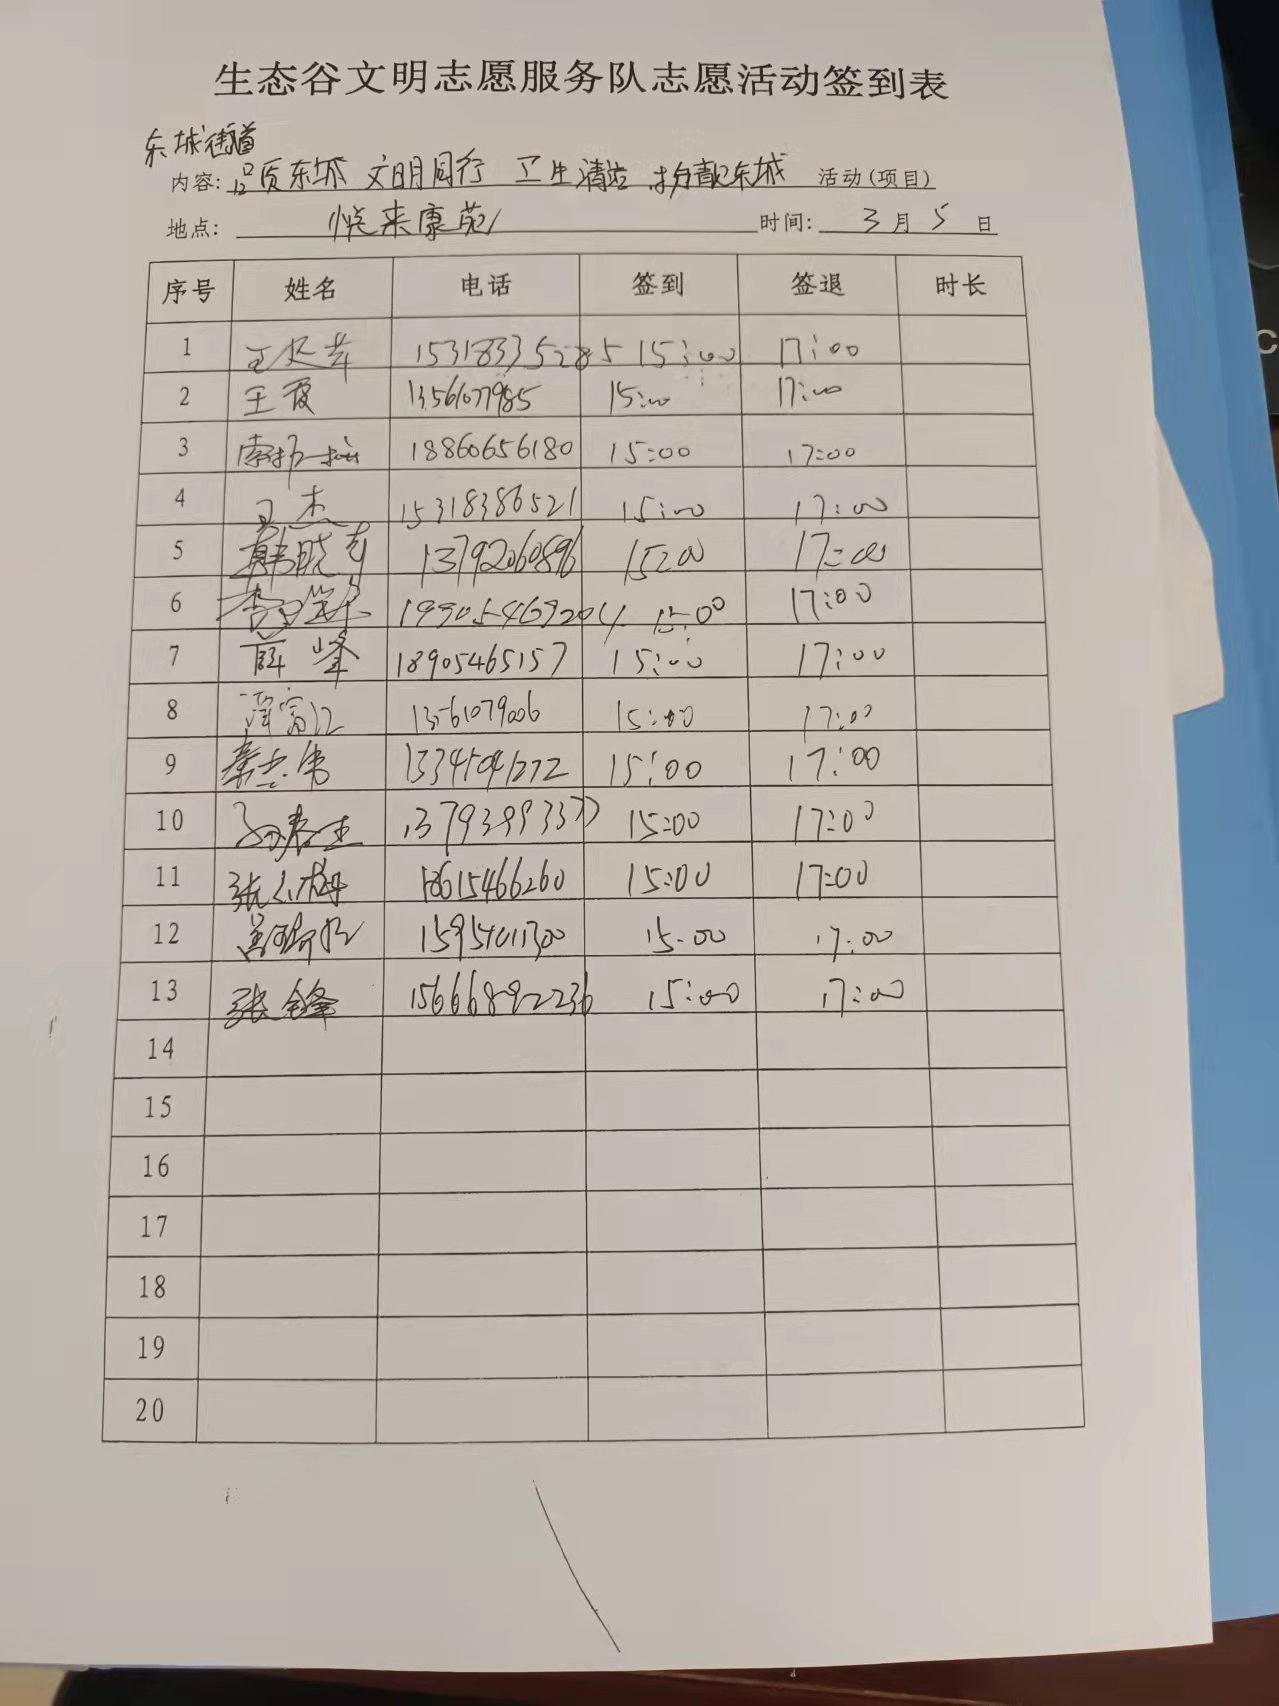 生态谷文明志愿服务队志愿活动签到表
东城街道
内容: 品质东城 文明同行 卫生清洁 扮靓东城 活动(项目)
地点: 悦来康苑 时间: 3月5日
序号 姓名 电话 签到 签退 时长
1 15318335285 15:00 17:00
2 王霞 13561077985 15:00 17:00
3 18860656180 15:00 17:00
4 王杰 15318386521 15:00 17:00
5 韩晓 13792060896 15:00 17:00
6 19905469204 15:00 17:00
7 薛峰 18905465157 15:00 17:00
8 13561079006 15:00 17:00
9 秦志伟 15:00 17:00
10 孙春生 13793993377 15:00 17:00
11 张 15:00 17:00
12 15954011300 15:00 17:00
13 张锋 15666892236 15:00 17:00
14
15
16
17
18
19
20